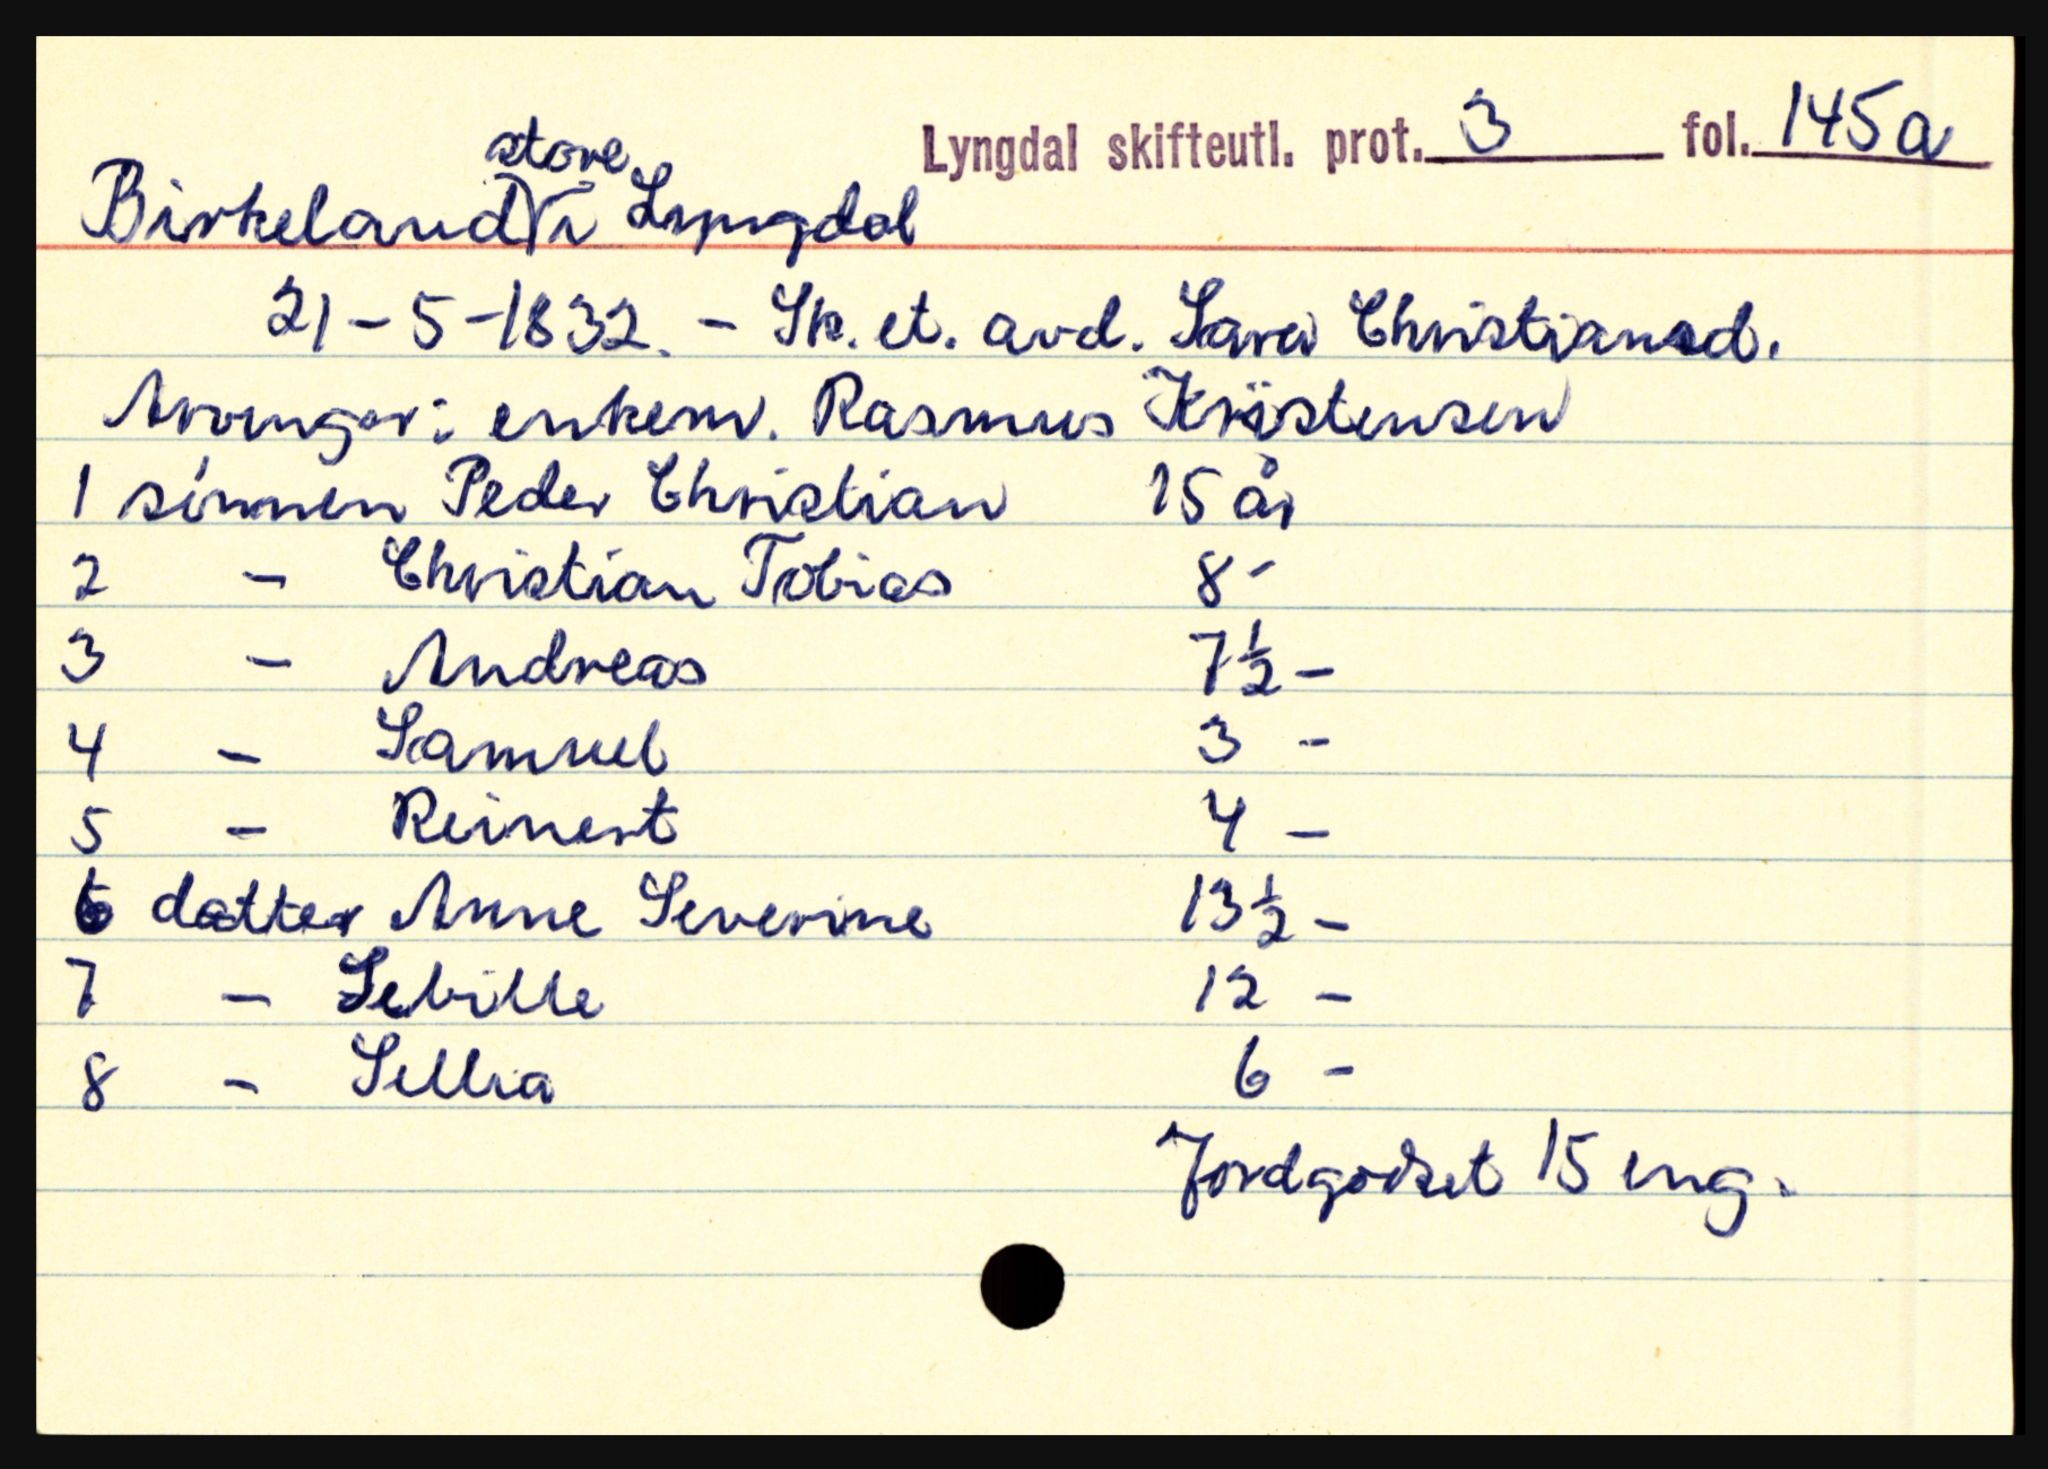 Lyngdal skifteutl. prot. 3 fol. 145a
Birkeland store i Lyngdal
21-5-1832. - Sk. et. avd. Sara Christiansd.
Arvinger: enkem. Rasmus Kristensen
1 sønnen Peder Christian 15 år
2 - Christian Tobias 8 -
3 - Andreas 7½ -
4 - Samuel 3 -
5 - Reinert 4 -
6 datter Anne Severine 13½ -
7 - Sebille 12 -
8 - Sellia 6 -
Jordgodset 15 eng.